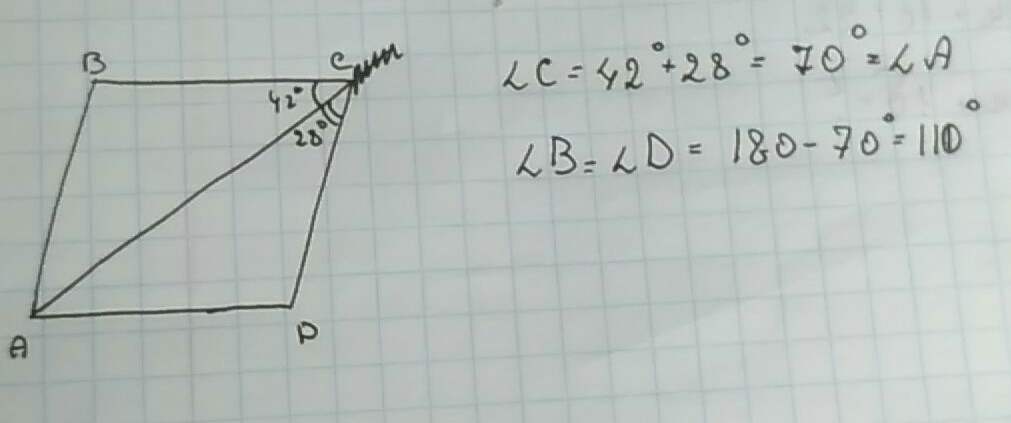 B
C
42°
28°
A
D
∠C = 42° + 28° = 70° = ∠A
∠B = ∠D = 180 - 70° = 110°